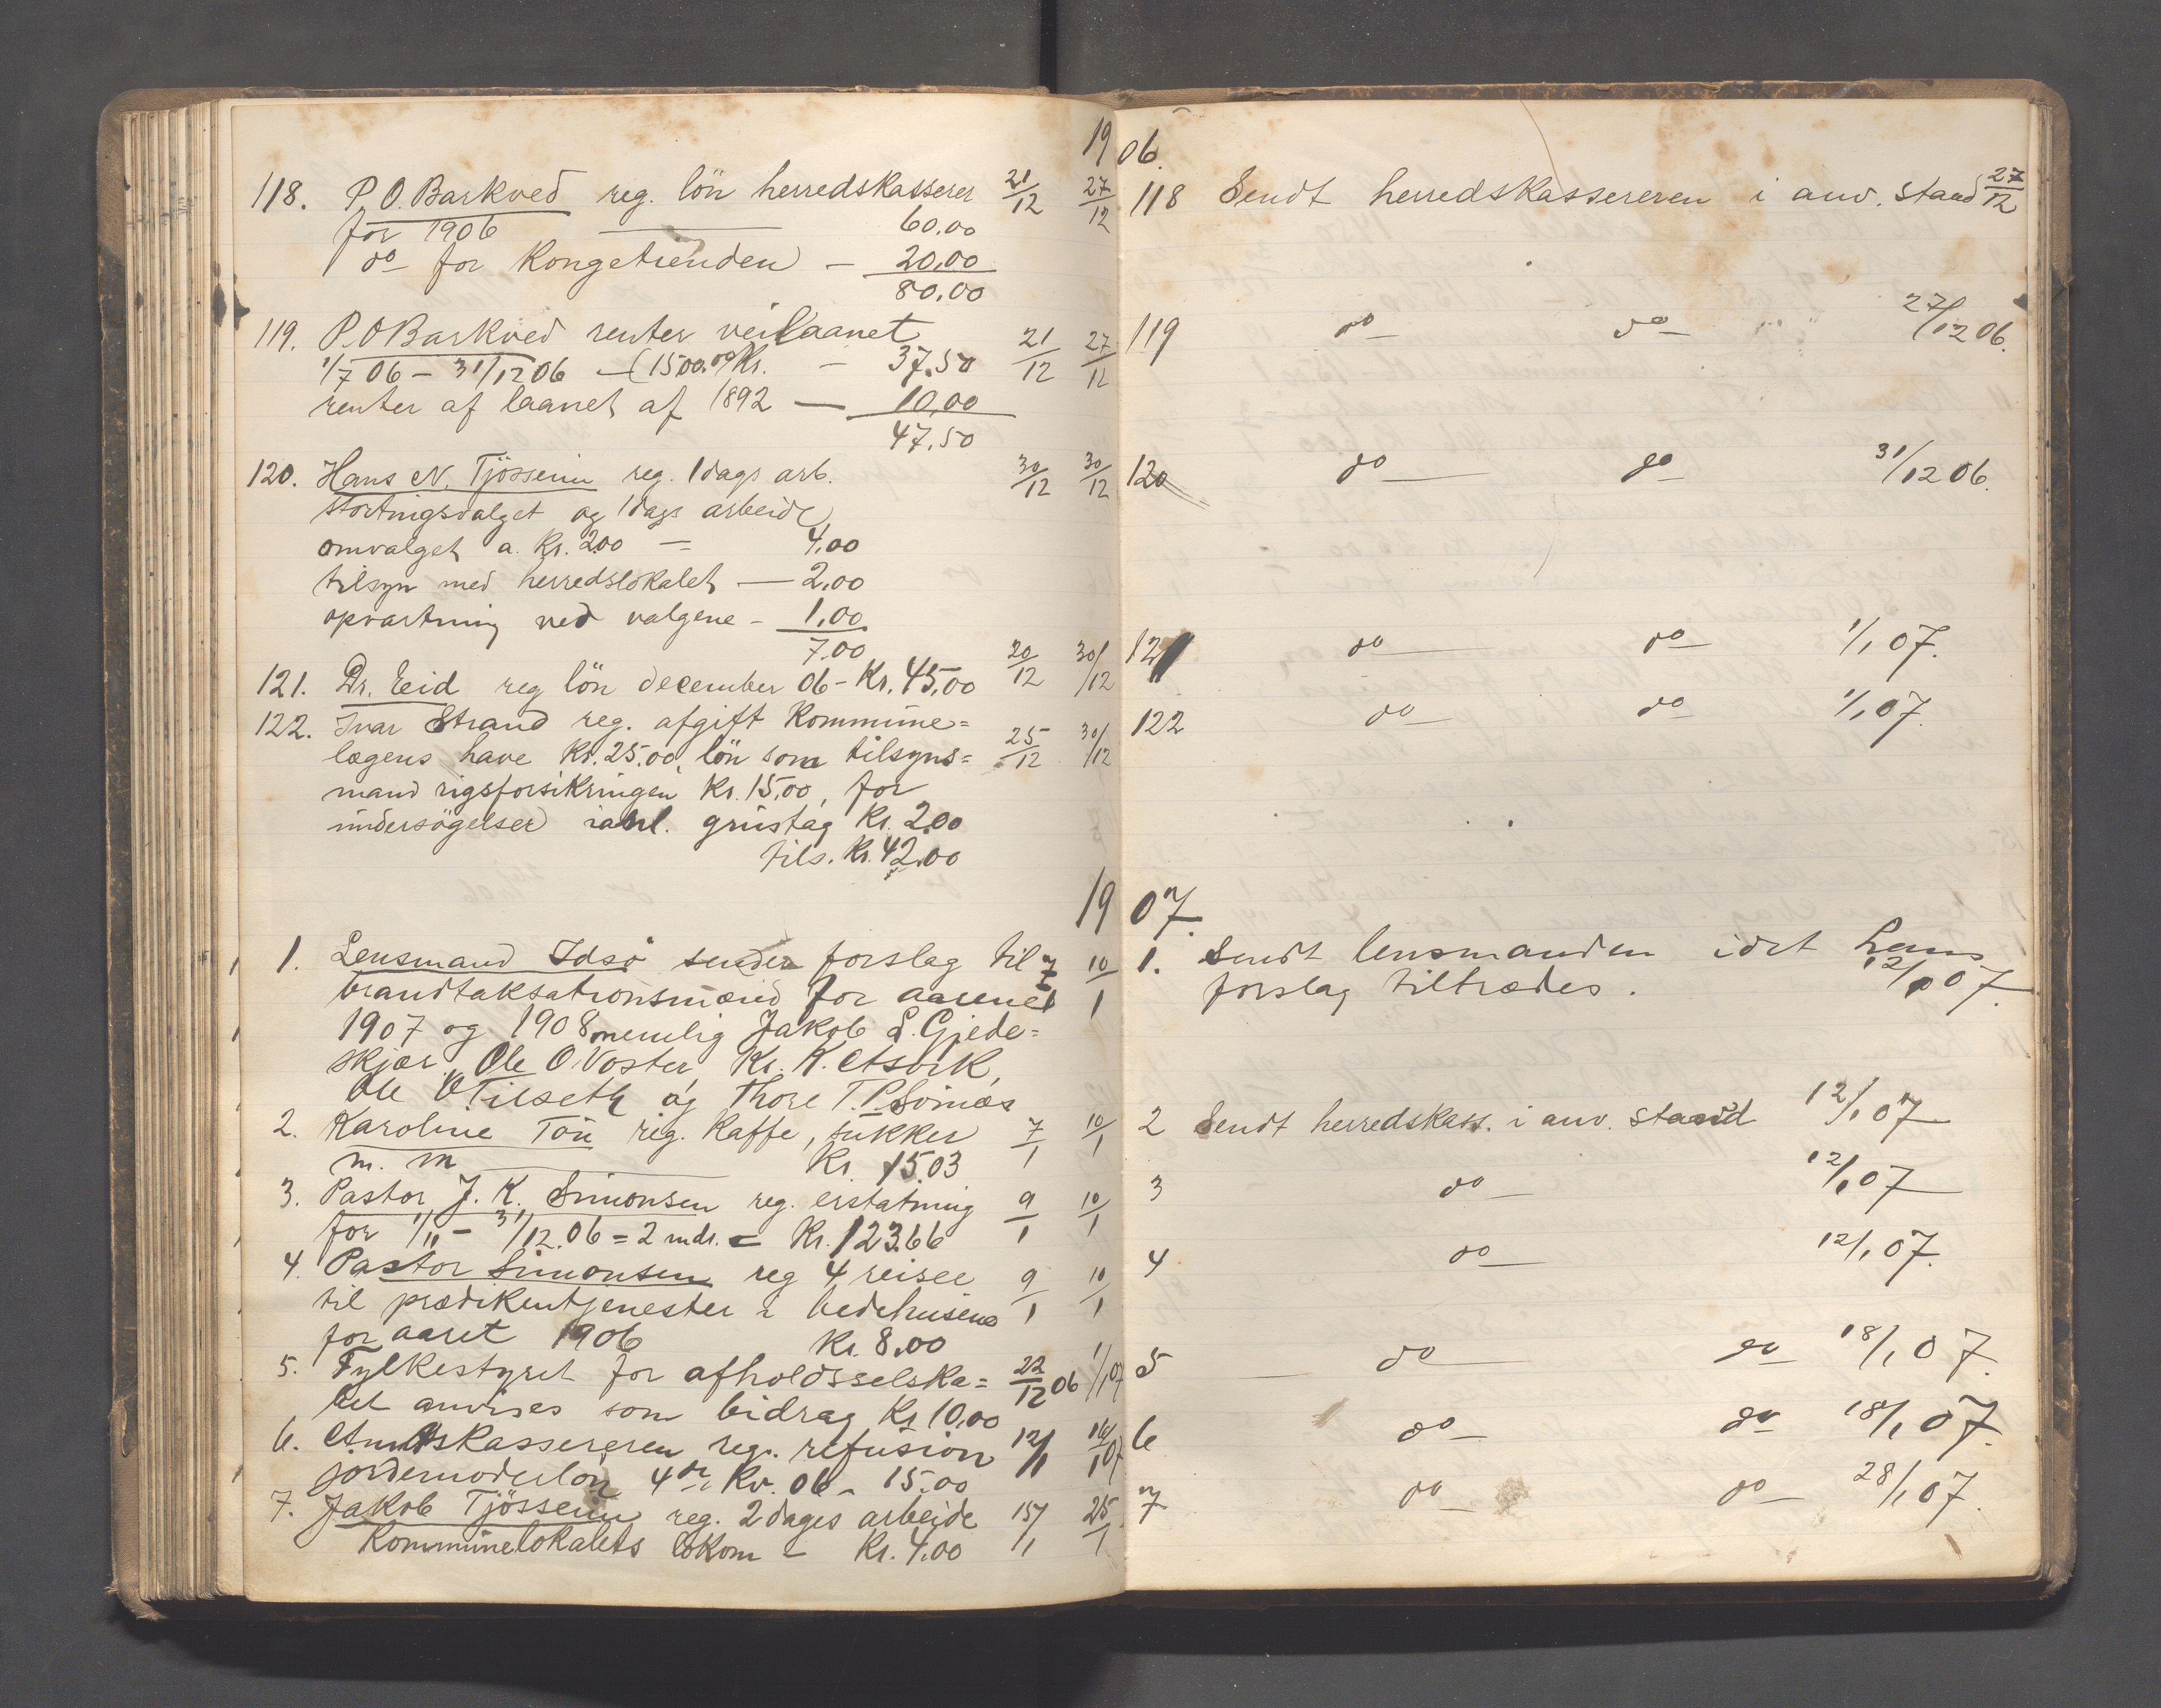 1906.
118. P. O. Barkved reg. lön herredskasserer 21/12 27/12
for 1906 60.00
do for Kongetienden — 20.00
80.00
119. P. O Barkved renter veilaanet 21/12 27/12
1/7 06 – 31/12 06 — (1500.00 Kr. — 37.50
renter af laanet af 1892 — 10.00
47.50
120. Hans N. Tjössem reg. 1 dags arb. 30/12 30/12
stortingsvalget og 1 dags arbeide
omvalget a. Kr. 2.00 — 4.00
tilsyn med herredslokalet — 2.00
opvartning ved valgene – 1.00
7.00
121. Dr. Eid reg lön december 06 – Kr. 45.00 20/12 30/12
122. Ivar Strand reg. afgift Kommune=
lægens have Kr. 25.00, lön som tilsyns= 25/12 30/12
mand rigsforsikringen Kr. 15.00, for
undersögelser grustag Kr. 2.00
tils. Kr. 42.00
1907.
1. Lensmand Idsö sender forslag til 7/1 10/1
brandtaksationsmænd for aarene
1907 og 1908 nemlig Jakob L. Gjede=
skjær, Ole O Voster, Kr. K. Asvik,
Ole O Tilseth og Thore T. P. Sömæs
2. Karoline Tou reg. Kaffe, sukker 7/1 10/1
m. m Kr. 15.03
3. Pastor J. K. Simonsen reg. erstatning 9/1 10/1
for 1/11 – 31/12.06 = 2 mdr. = Kr. 123.66
4. Pastor Simonsen reg 4 reiser 9/1 10/1
til prædikentjenester i bedehusene
for aaret 1906 Kr. 8.00
5. Fylkestyret for afholdsselska= 22/12 06 1/1 07
bet anvises som bidrag Kr 10.00
6. Amtskassereren reg. refusion 12/1 16/1 07
jordemoderlön 4de Kv. 06 – 15.00
7. Jakob Tjössem reg. 2 dages arbeide 15/1 25/1
Kommunelokalets Kr. 4.00
118 Sendt herredskassereren i anv. stand 27/12
119 do do 27/12 06.
120 do do 31/12 06.
121 do do 1/1 07.
122 do do 1/1 07.
1. Sendt lensmanden idet hans
forslag tiltrædes. 12/1 07.
2 Sendt herredskass. i anv. stand 12/1 07
3 do 12/1 07
4 do 12/1 07.
5 do do 18/1 07.
6 do do 18/1 07.
7 do do 28/1 07.